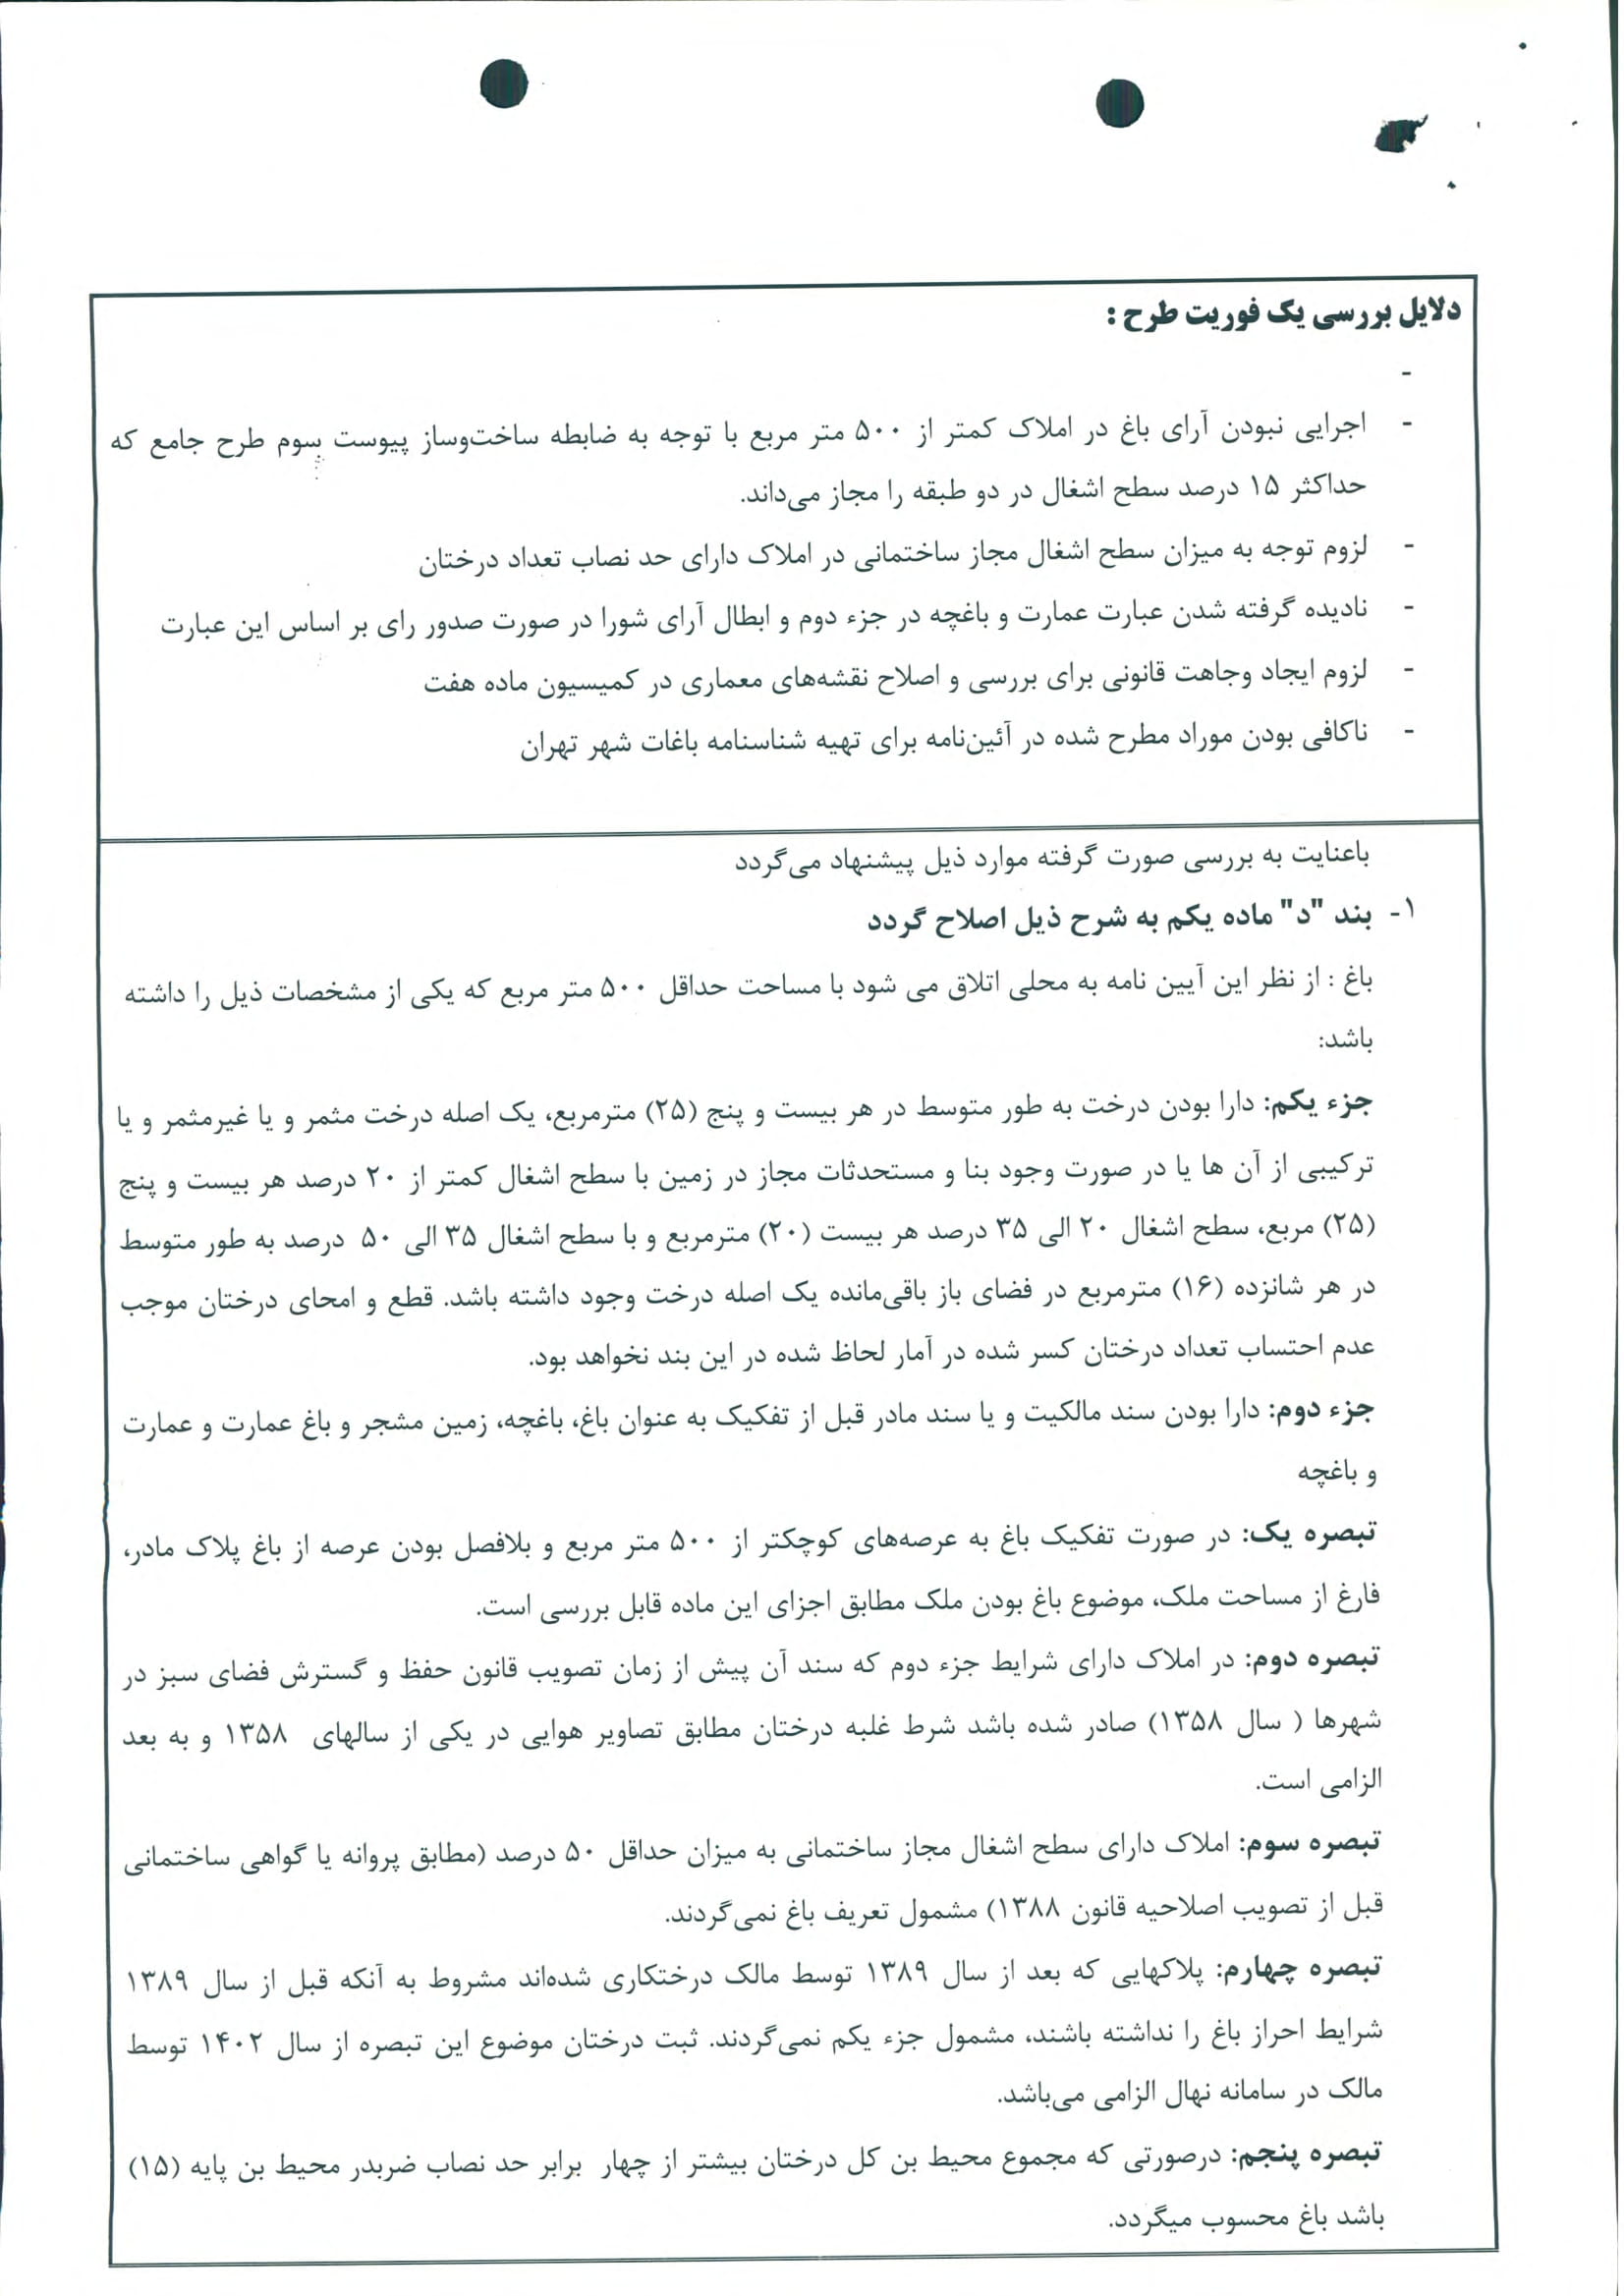 دلایل بررسی یک فوریت طرح :
-
- اجرایی نبودن آرای باغ در املاک کمتر از ۵۰۰ متر مربع با توجه به ضابطه ساخت‌وساز پیوست سوم طرح جامع که
حداکثر ۱۵ درصد سطح اشغال در دو طبقه را مجاز می‌داند.
- لزوم توجه به میزان سطح اشغال مجاز ساختمانی در املاک دارای حد نصاب تعداد درختان
- نادیده گرفته شدن عبارت عمارت و باغچه در جزء دوم و ابطال آرای شورا در صورت صدور رای بر اساس این عبارت
- لزوم ایجاد وجاهت قانونی برای بررسی و اصلاح نقشه‌های معماری در کمیسیون ماده هفت
- ناکافی بودن موراد مطرح شده در آئین‌نامه برای تهیه شناسنامه باغات شهر تهران
باعنایت به بررسی صورت گرفته موارد ذیل پیشنهاد می‌گردد
۱- بند "د" ماده یکم به شرح ذیل اصلاح گردد
باغ : از نظر این آیین نامه به محلی اتلاق می شود با مساحت حداقل ۵۰۰ متر مربع که یکی از مشخصات ذیل را داشته
باشد:
جزء یکم: دارا بودن درخت به طور متوسط در هر بیست و پنج (۲۵) مترمربع، یک اصله درخت مثمر و یا غیرمثمر و یا
ترکیبی از آن ها یا در صورت وجود بنا و مستحدثات مجاز در زمین با سطح اشغال کمتر از ۲۰ درصد هر بیست و پنج
(۲۵) مربع، سطح اشغال ۲۰ الی ۳۵ درصد هر بیست (۲۰) مترمربع و با سطح اشغال ۳۵ الی ۵۰ درصد به طور متوسط
در هر شانزده (۱۶) مترمربع در فضای باز باقی‌مانده یک اصله درخت وجود داشته باشد. قطع و امحای درختان موجب
عدم احتساب تعداد درختان کسر شده در آمار لحاظ شده در این بند نخواهد بود.
جزء دوم: دارا بودن سند مالکیت و یا سند مادر قبل از تفکیک به عنوان باغ، باغچه، زمین مشجر و باغ عمارت و عمارت
و باغچه
تبصره یک: در صورت تفکیک باغ به عرصه‌های کوچکتر از ۵۰۰ متر مربع و بلافصل بودن عرصه از باغ پلاک مادر،
فارغ از مساحت ملک، موضوع باغ بودن ملک مطابق اجزای این ماده قابل بررسی است.
تبصره دوم: در املاک دارای شرایط جزء دوم که سند آن پیش از زمان تصویب قانون حفظ و گسترش فضای سبز در
شهرها ( سال ۱۳۵۸) صادر شده باشد شرط غلبه درختان مطابق تصاویر هوایی در یکی از سالهای ۱۳۵۸ و به بعد
الزامی است.
تبصره سوم: املاک دارای سطح اشغال مجاز ساختمانی به میزان حداقل ۵۰ درصد (مطابق پروانه یا گواهی ساختمانی
قبل از تصویب اصلاحیه قانون ۱۳۸۸) مشمول تعریف باغ نمی‌گردند.
تبصره چهارم: پلاکهایی که بعد از سال ۱۳۸۹ توسط مالک درختکاری شده‌اند مشروط به آنکه قبل از سال ۱۳۸۹
شرایط احراز باغ را نداشته باشند، مشمول جزء یکم نمی‌گردند. ثبت درختان موضوع این تبصره از سال ۱۴۰۲ توسط
مالک در سامانه نهال الزامی می‌باشد.
تبصره پنجم: درصورتی که مجموع محیط بن کل درختان بیشتر از چهار برابر حد نصاب ضربدر محیط بن پایه (۱۵)
باشد باغ محسوب میگردد.